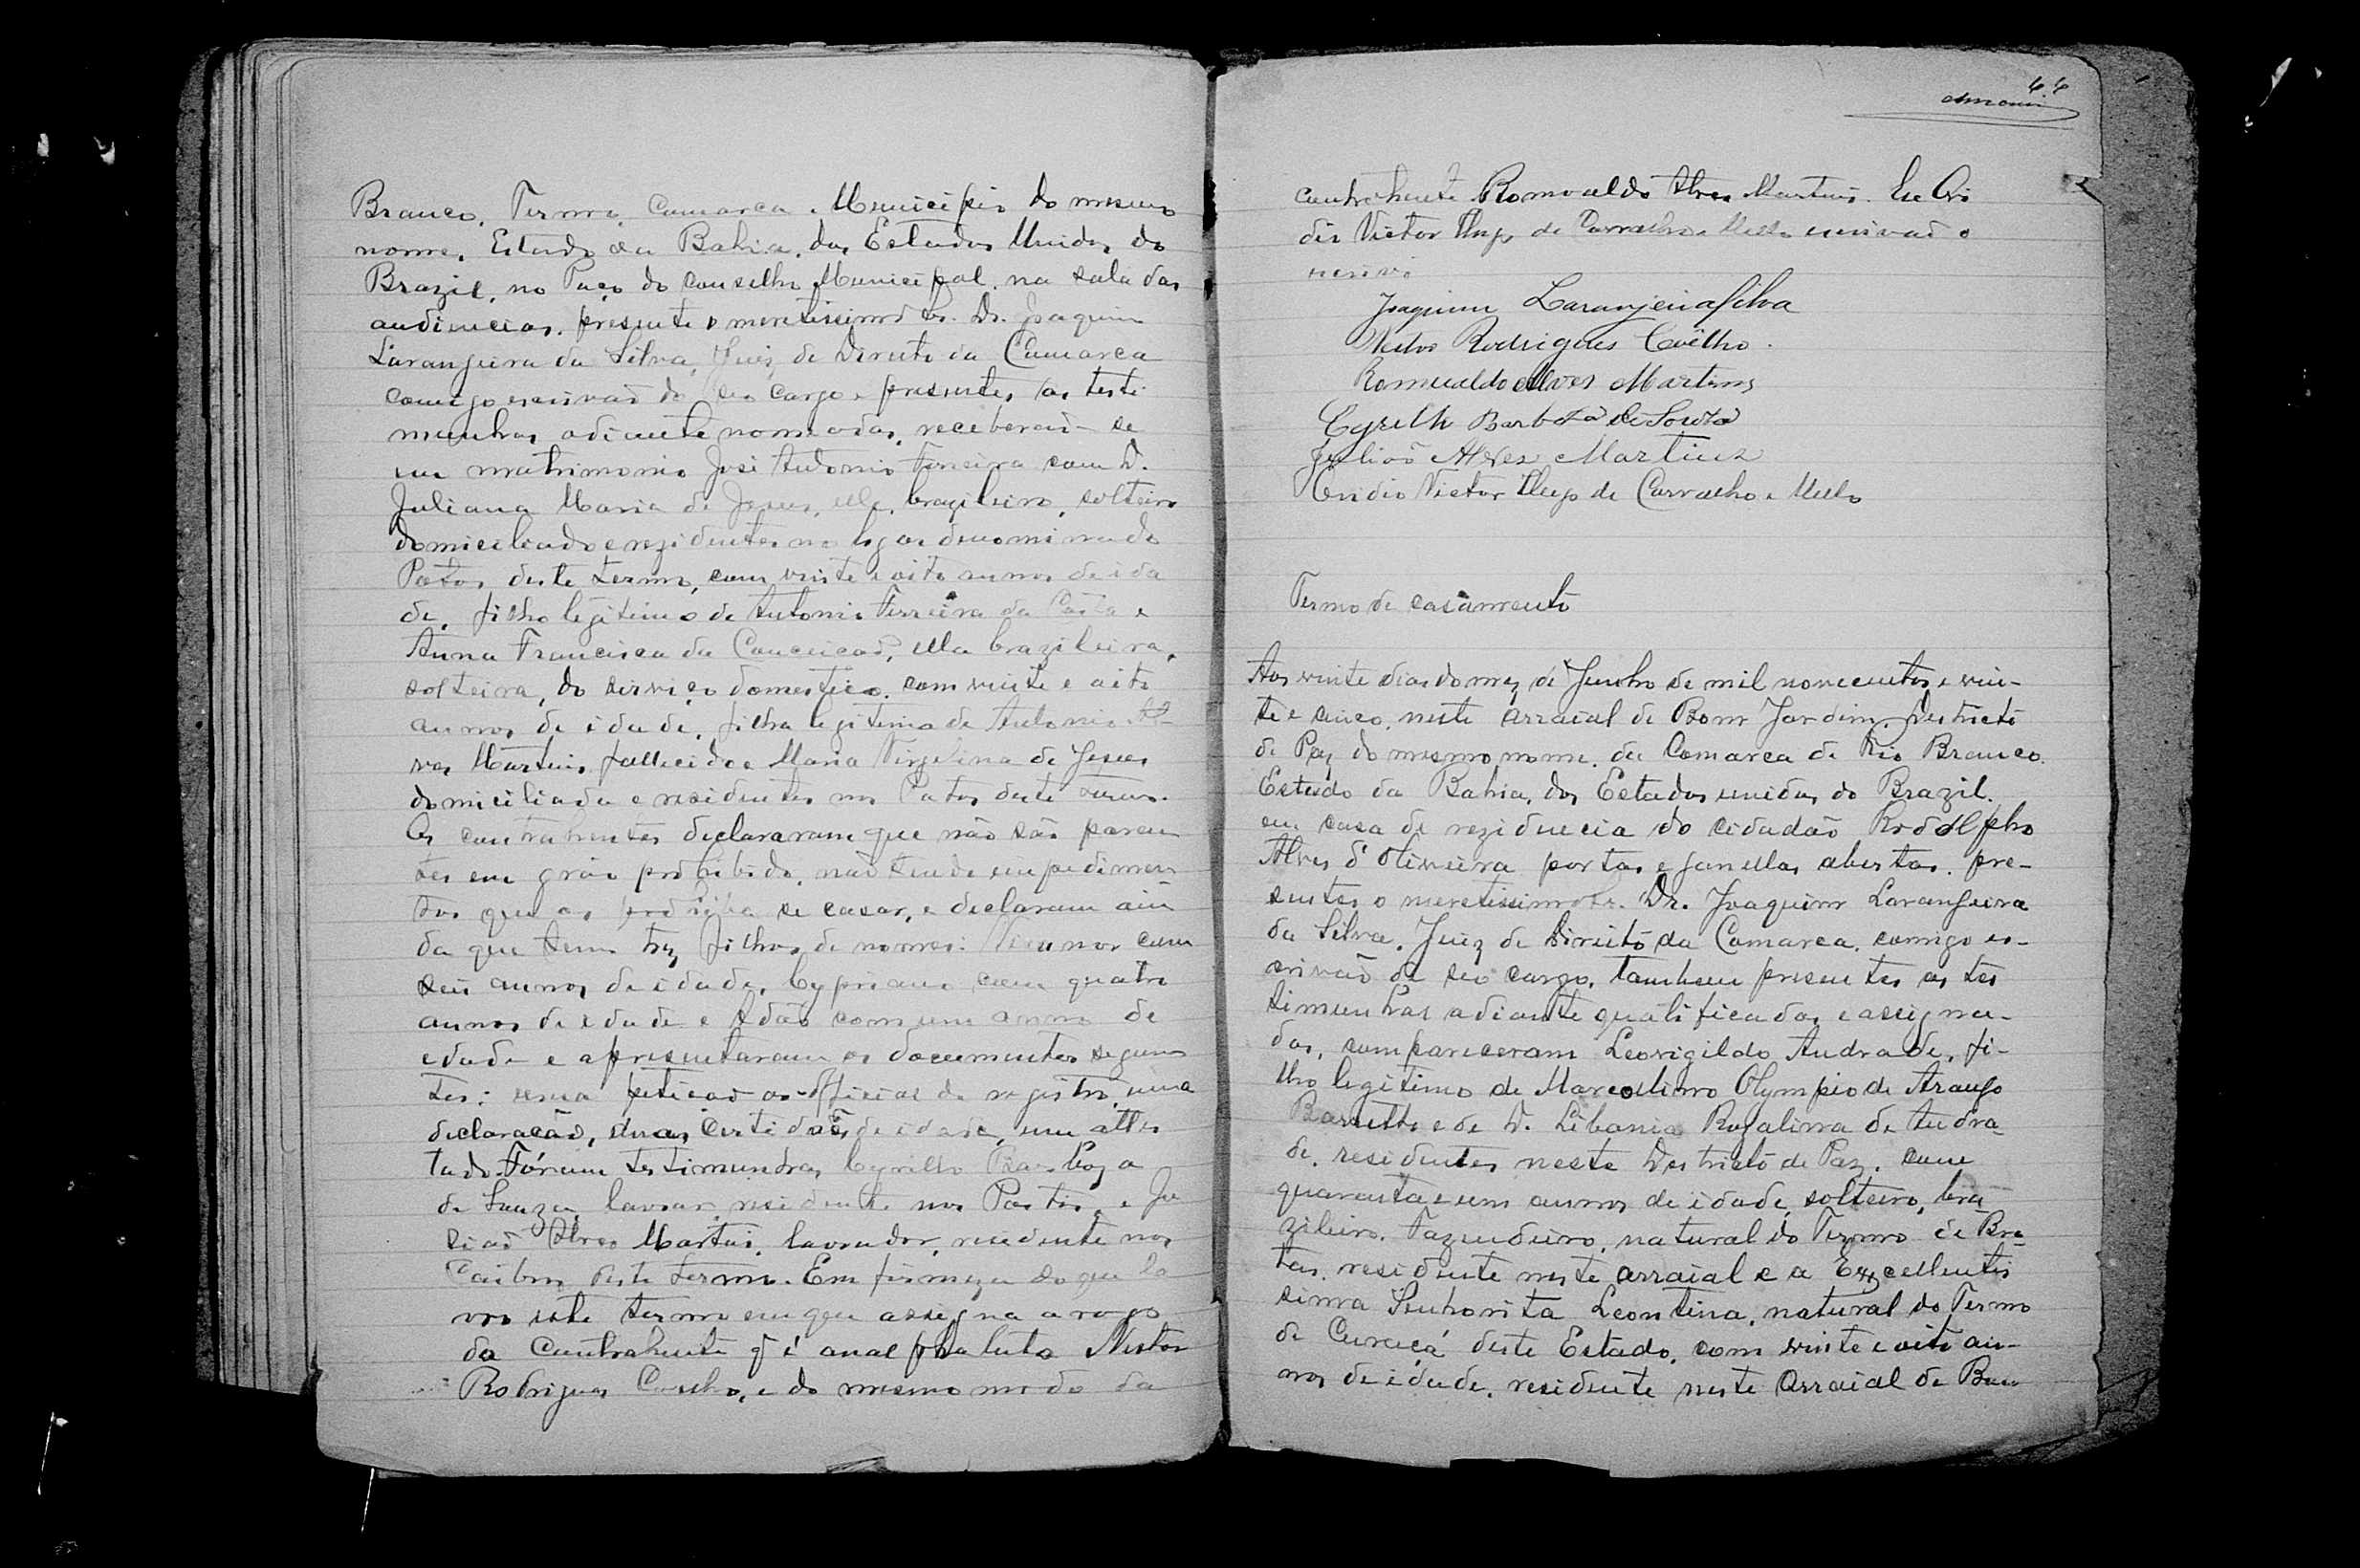 Branco, Termo, Comarca e Municipio do mesmo
nome, Estado da Bahia, dos Estados Unidos do
Brazil, no Paço do Conselho Municipal, na sala das
audiencias, presente o meretissimo Sr. Dr. Joaquim
Laranjeira da Silva, Juiz de Direito da Comarca
comigo escrivaõ do seo cargo e presentes as teste
munhas adiante nomeadas, receberaõ-se
em matrimonio José Antonio Ferreira com D.
Juliana Maria de Jesus, elle, brazileiro, solteiro
domiciliado e rezidentes no logar denominado
Patos, deste termo, com vinte e oito annos de ida
de, filho legitimo de Antonio Ferreira da Costa e
Anna Francisca da Conceicaõ, ella brazileira,
solteira, do serviço domestico, com vinte e oito
annos de idade, filha legitima de Antonio Al-
ves Martins, fallecido e Maria Virgelina de Jesus
domiciliada e residentes nos Patos deste termo.
Os contrahentes declararam que não são paren
tes em gráo prohibido, naõ tendo empedimen
tos que os prohiba se casar, e declaram ain
da que tem trez filhos de nomes: com
seis annos de idade, Cypriano com quatro
annos de edade e Adão com um anno de
edade e apresentaram os documentos seguin
tes: uma peticaõ ao official do registro, uma
declaração, duas certidoẽs de idade, um attes
tado. Fóram testimunhas Cyrillo Barboza
de Souza lavrar residente nos Patos, e Ju
liaõ Alves Martins, lavrador, residente nos
deste termo. Em firmeza do que la
vro este termo em que assigna a rogo
da Contrahente q̃ é analphabeta Nestor
Rodrigues Coelho, e do mesmo modo da
44
contrahente Romoaldo Alves Martins. Eu Ovi
dio Victor Hugo de Carvalho e Mello escrivaõ o
escrivi
Joaquim Laranjeira Silva
Nestor Rodrigues Coêlho.
Romualdo Alves Martins
Cyrillo Barboza de Souza
Juliaõ Alves Martins
Ovidio Victor Hugo de Carvalho e Mello
Termo de casamento
Aos vinte dias do mez de Junho de mil novecentos e vin-
te e cinco, neste arraial de Bom Jardim, Destricto
de Paz do mesmo nome, da Comarca de Rio Branco.
Estado da Bahia, dos Estados unidos do Brazil.
em casa de rezidencia do cidadão Rodolpho
Alves d'Oliveira portas e janellas abertas, pre-
sentes o meretissimo Sr. Dr. Joaquim Laranjeira
da Silva, Juiz de Direito da Comarca, comigo es-
crivaõ de seo cargo, tambem presentes as tes
timunhas adiante qualificadas e assigna-
das, compareceram Leovigildo Andrade, fi-
lho legitimo de Marcollino Olympio de Araujo
Barretto e de D. Libania Rozalina de Andra-
de, residentes neste Destricto de Paz, com
quarenta e um annos de idade, solteiro, bra-
zileiro, Fazendeiro, natural do Termo de Bro-
tas, residente neste arraial e a Excellentis
sima Senhorita Leontina, natural do Termo
de Curuçá deste Estado, com vinte e oito an-
nos de idade, residente neste Arraial de Bom